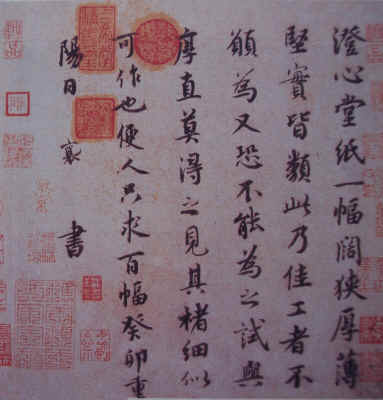 澄心堂紙一幅闊狹厚薄
堅實皆類此乃佳工者不
願為又恐不能為之試與
厚直莫得之見其楮細似
可作也便人只求百幅癸卯重
陽日 襄 書